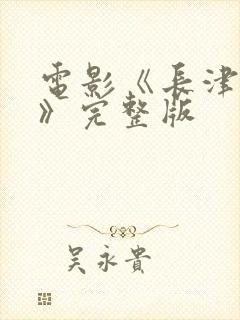 電影《長津
》完整版
吴永貴